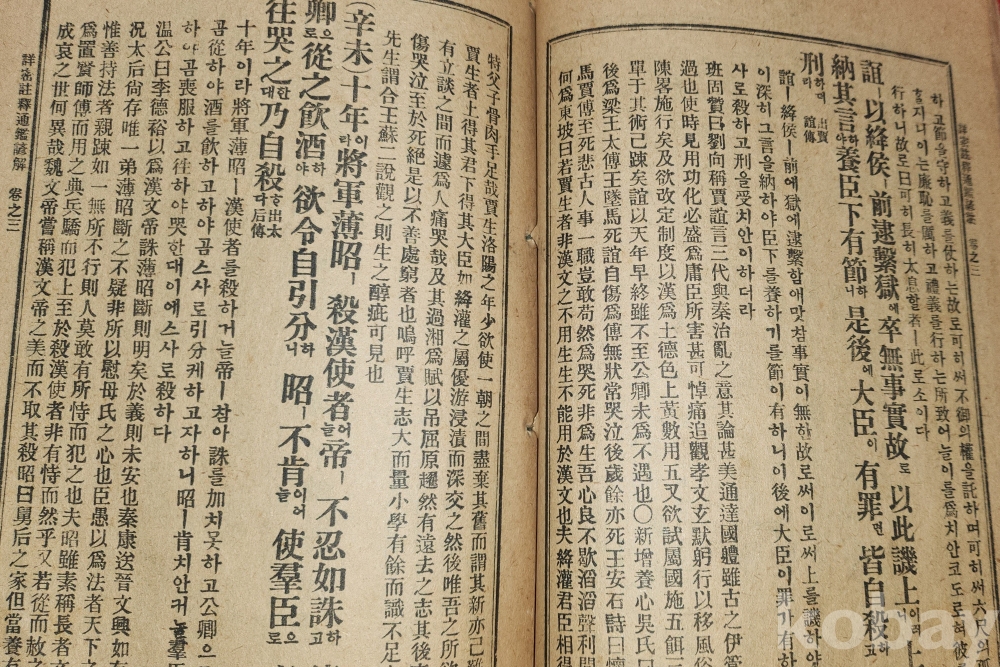 詳密註釋通鑑諺解 卷之三
하고節을守하고義를仗하는故로可히써不御의權을託하며可히써六尺의
이는廉恥를厲하고禮義를行하는所致어늘이를爲치안코도로혀彼
行하니故로曰可히長히太息할者ㅣ此로소이다
誼ㅣ以絳侯ㅣ前逮繫獄에卒無事實故로以此譏上
納其言하야養臣下有節하니是後에大臣이有罪면皆自殺하고
刑하며라 出賈誼傳
誼ㅣ絳侯ㅣ前에獄에逮繫함애맛참事實이無한故로써이로써上를譏하야
이深히그言을納하야臣下를養하기를節이有하니이後에大臣이罪가有하
사로殺하고刑을受치안이하더라
班固贊曰劉向稱賈誼言三代與秦治亂之意其論甚美通達國體雖古之伊管
過也使時見用功化必盛爲庸臣所害甚可悼痛追觀孝文玄默躬行以移風俗
陳畧施行矣及欲改定制度以漢爲土德色上黃數用五又欲試屬國施五餌三
單于其術已踈矣誼以天年早終雖不至公卿未爲不遇也○新增養心吳氏曰
後爲梁王太傅王墜馬死誼自傷爲傅無狀常哭泣後歲餘亦死王安石詩曰懷
馬賈傅至死悲古人事一職豈敢苟然爲哭死非爲生吾心良不歇滔滔聲利間
何爲東坡曰若賈生者非漢文之不用生生不能用於漢文也夫絳灌君臣相得
特父子骨肉手足哉賈生洛陽之年少欲使一朝之間盡棄其舊而謂其新亦已難
賈生者上得其君下得其大臣如絳灌之屬優游浸漬而深交之然後唯吾之所欲
有立談之間而遽爲人痛哭哉及其過湘爲賦以吊屈原趯然有遠去之志其後
傷哭泣至於死絕是亦不善處窮者也嗚呼賈生志大而量小學有餘而識不足
先生謂合王蘇二說觀之則生之醇疵可見也
(辛未)十年이라將軍薄昭ㅣ殺漢使者늘어帝ㅣ不忍如誅하고
卿으로從之飮酒하야欲令自引分하니昭ㅣ不肯이어늘使羣臣으로
往哭之한대乃自殺하다出太后傳
十年이라將軍薄昭ㅣ漢使者를殺하거늘帝ㅣ참아誅를加치못하고公卿으로
곰從하야酒를飮하고하야곰스사로引分케하고자하니昭ㅣ肯치안커늘羣臣
하야곰喪服하고往하야哭한대이에스사로殺하다
溫公曰李德裕以爲漢文帝誅薄昭斷則明矣於義則未安也秦康送晉文興如
況太后尙存唯一弟薄昭斷之不疑非所以慰母氏之心也臣愚以爲法者天下之
惟善持法者親踈如一無所不行則人莫敢有所恃而犯之也夫昭雖素稱長者
爲置賢師傅而用之典兵驕而犯上至於殺漢使者非有恃而然乎又若從而赦之
成哀之世何異哉魏文帝嘗稱漢文帝之美而不取其殺昭曰舅后之家但當養
詳密註釋通鑑諺解 卷之三